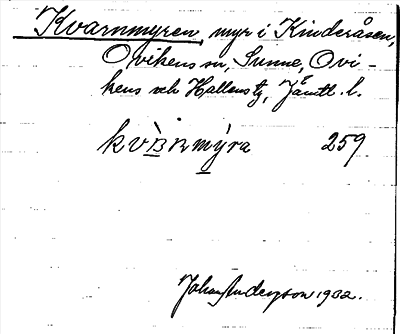 Kvarnmyren, myr i Kinderåsen,
Ovikens sn, Sunne, Ovi-
kens och Hallens tg, Jämtl. l.
259
Johan Anderzson 1932.